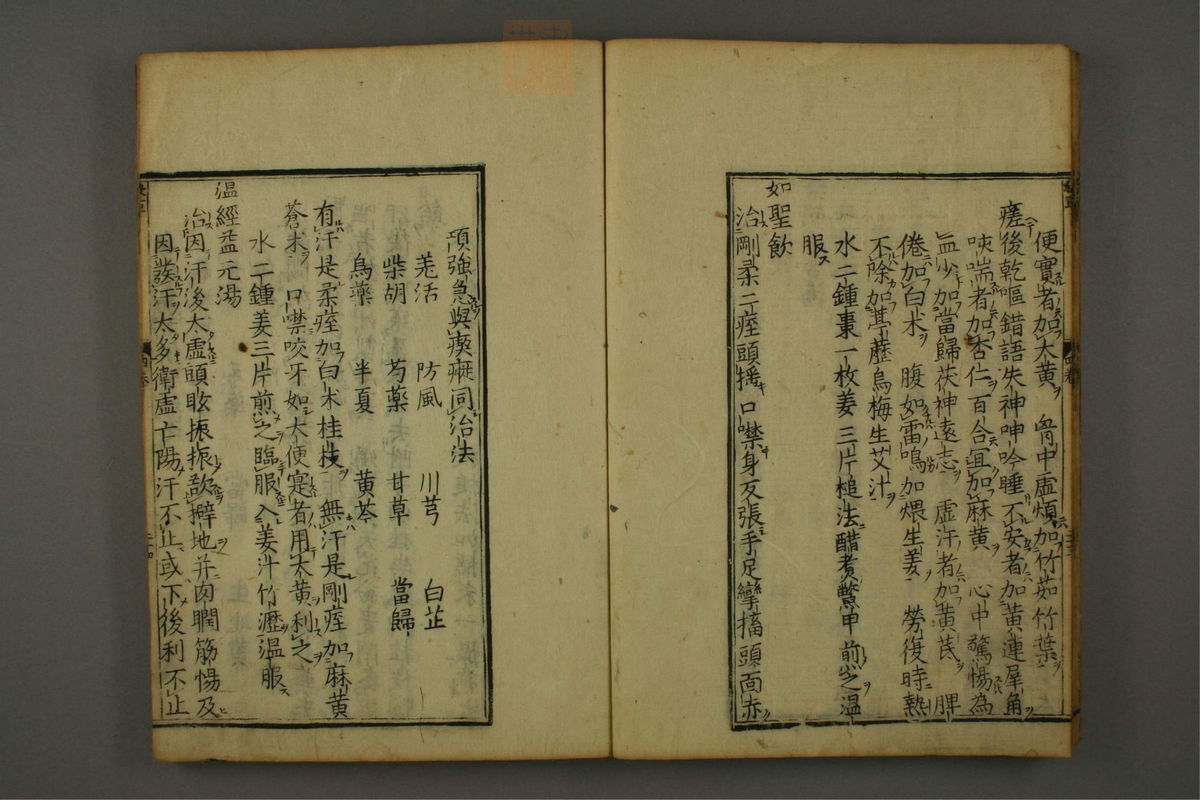 便實者加大黃 胷中虛煩加竹茹竹葉
瘥後乾嘔錯語失神呻吟睡不安者加黃連犀角
咳喘者加杏仁百合宜加麻黃 心中驚惕為
血少加當歸茯神遠志 虛汗者加黃芪 脾
倦加白朮 腹如雷鳴加煨生姜 勞復時熱
不除加葶藶烏梅生艾汁
水二鍾棗一枚姜三片槌法醋煑鱉甲煎之温
服
如聖飲
治剛柔二痓頭揺口噤身反張手足攣搐頭面赤
項強急與瘈瘲同治法
羌活 防風 川芎 白芷
柴胡 芍藥 甘草 當歸
烏藥 半夏 黄芩
有汗是柔痓加白朮桂枝 無汗是剛痓加麻黄
蒼朮 口噤咬牙如大便寔者用大黄利之
水二鍾姜三片煎之臨服入姜汁竹瀝温服
温經益元湯
治因汗後大虛頭眩振振欲擗地并肉瞤筋惕及
因發汗太多衛虛亡陽汗不止或下後利不止